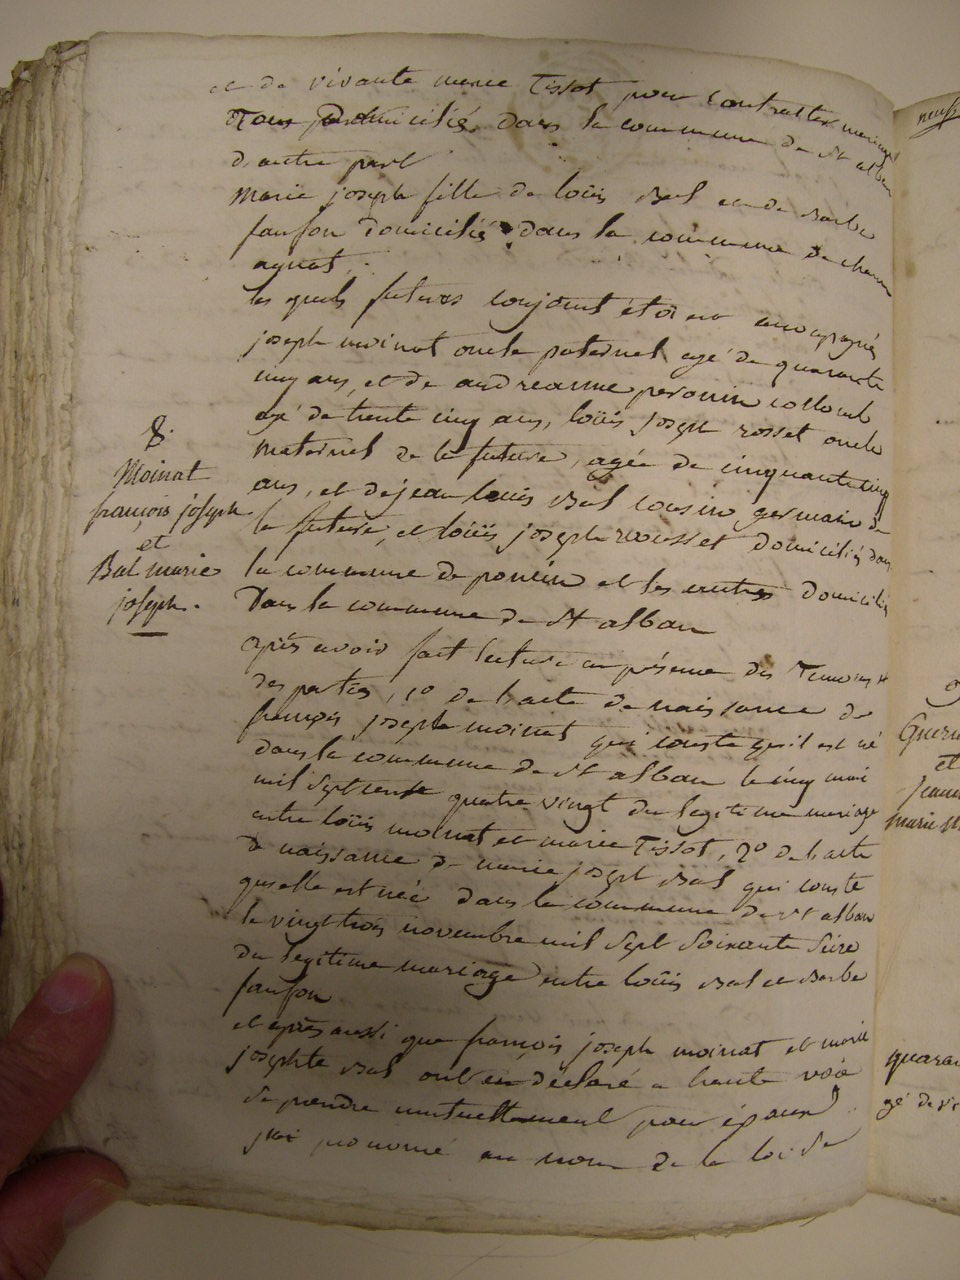 et de vivante marie Tissot pour Contracter mariage
Tous domiciliés dans la commune de St alban
d'autre part
Marie joseph fille de loüis Bal et de Barbe
fanfon domiciliés dans la commune de
agnat.
les quels futures conjoints étoient accompagnés
joseph moinat oncle paternel agé de quarante
cinq ans, et de andreanne peronin collomb
agé de trente cinq ans, loüis joseph rosset oncle
maternel de la future, agée de cinquante cinq
ans, et de jean loüis Bal cousin germain de
la future, et loüis joseph rousset domiciliés dans
la commune de poncin et les autres domiciliés
Dans la commune de St alban
après avoir fait lecture en présence des Temoins et
des parties, 1º de l'acte de naissance de
françois joseph moinat qui conste qu'il est né
dans la commune de St alban le cinq mai
mil sept cent quatre vingt du legitime mariage
entre loüis moinat et marie Tissot, 2º de l'acte
de naissance de marie joseph Bal qui conste
quelle est née dans la commune de St alban
le vingt trois novembre mil sept soixante seize
du legitime mariage entre loüis Bal et Barbe
fanfon
et après aussi que françois joseph moinat et marie
josephte Bal ont eu déclaré a haute voix
se prendre mutuellement pour époux
j'ai prononcé au nom de la loi de
8.
Moinat
françois joseph
et
Bal marie
joseph.
Guerin
et
jeanne
marie
quaran
gé de vi